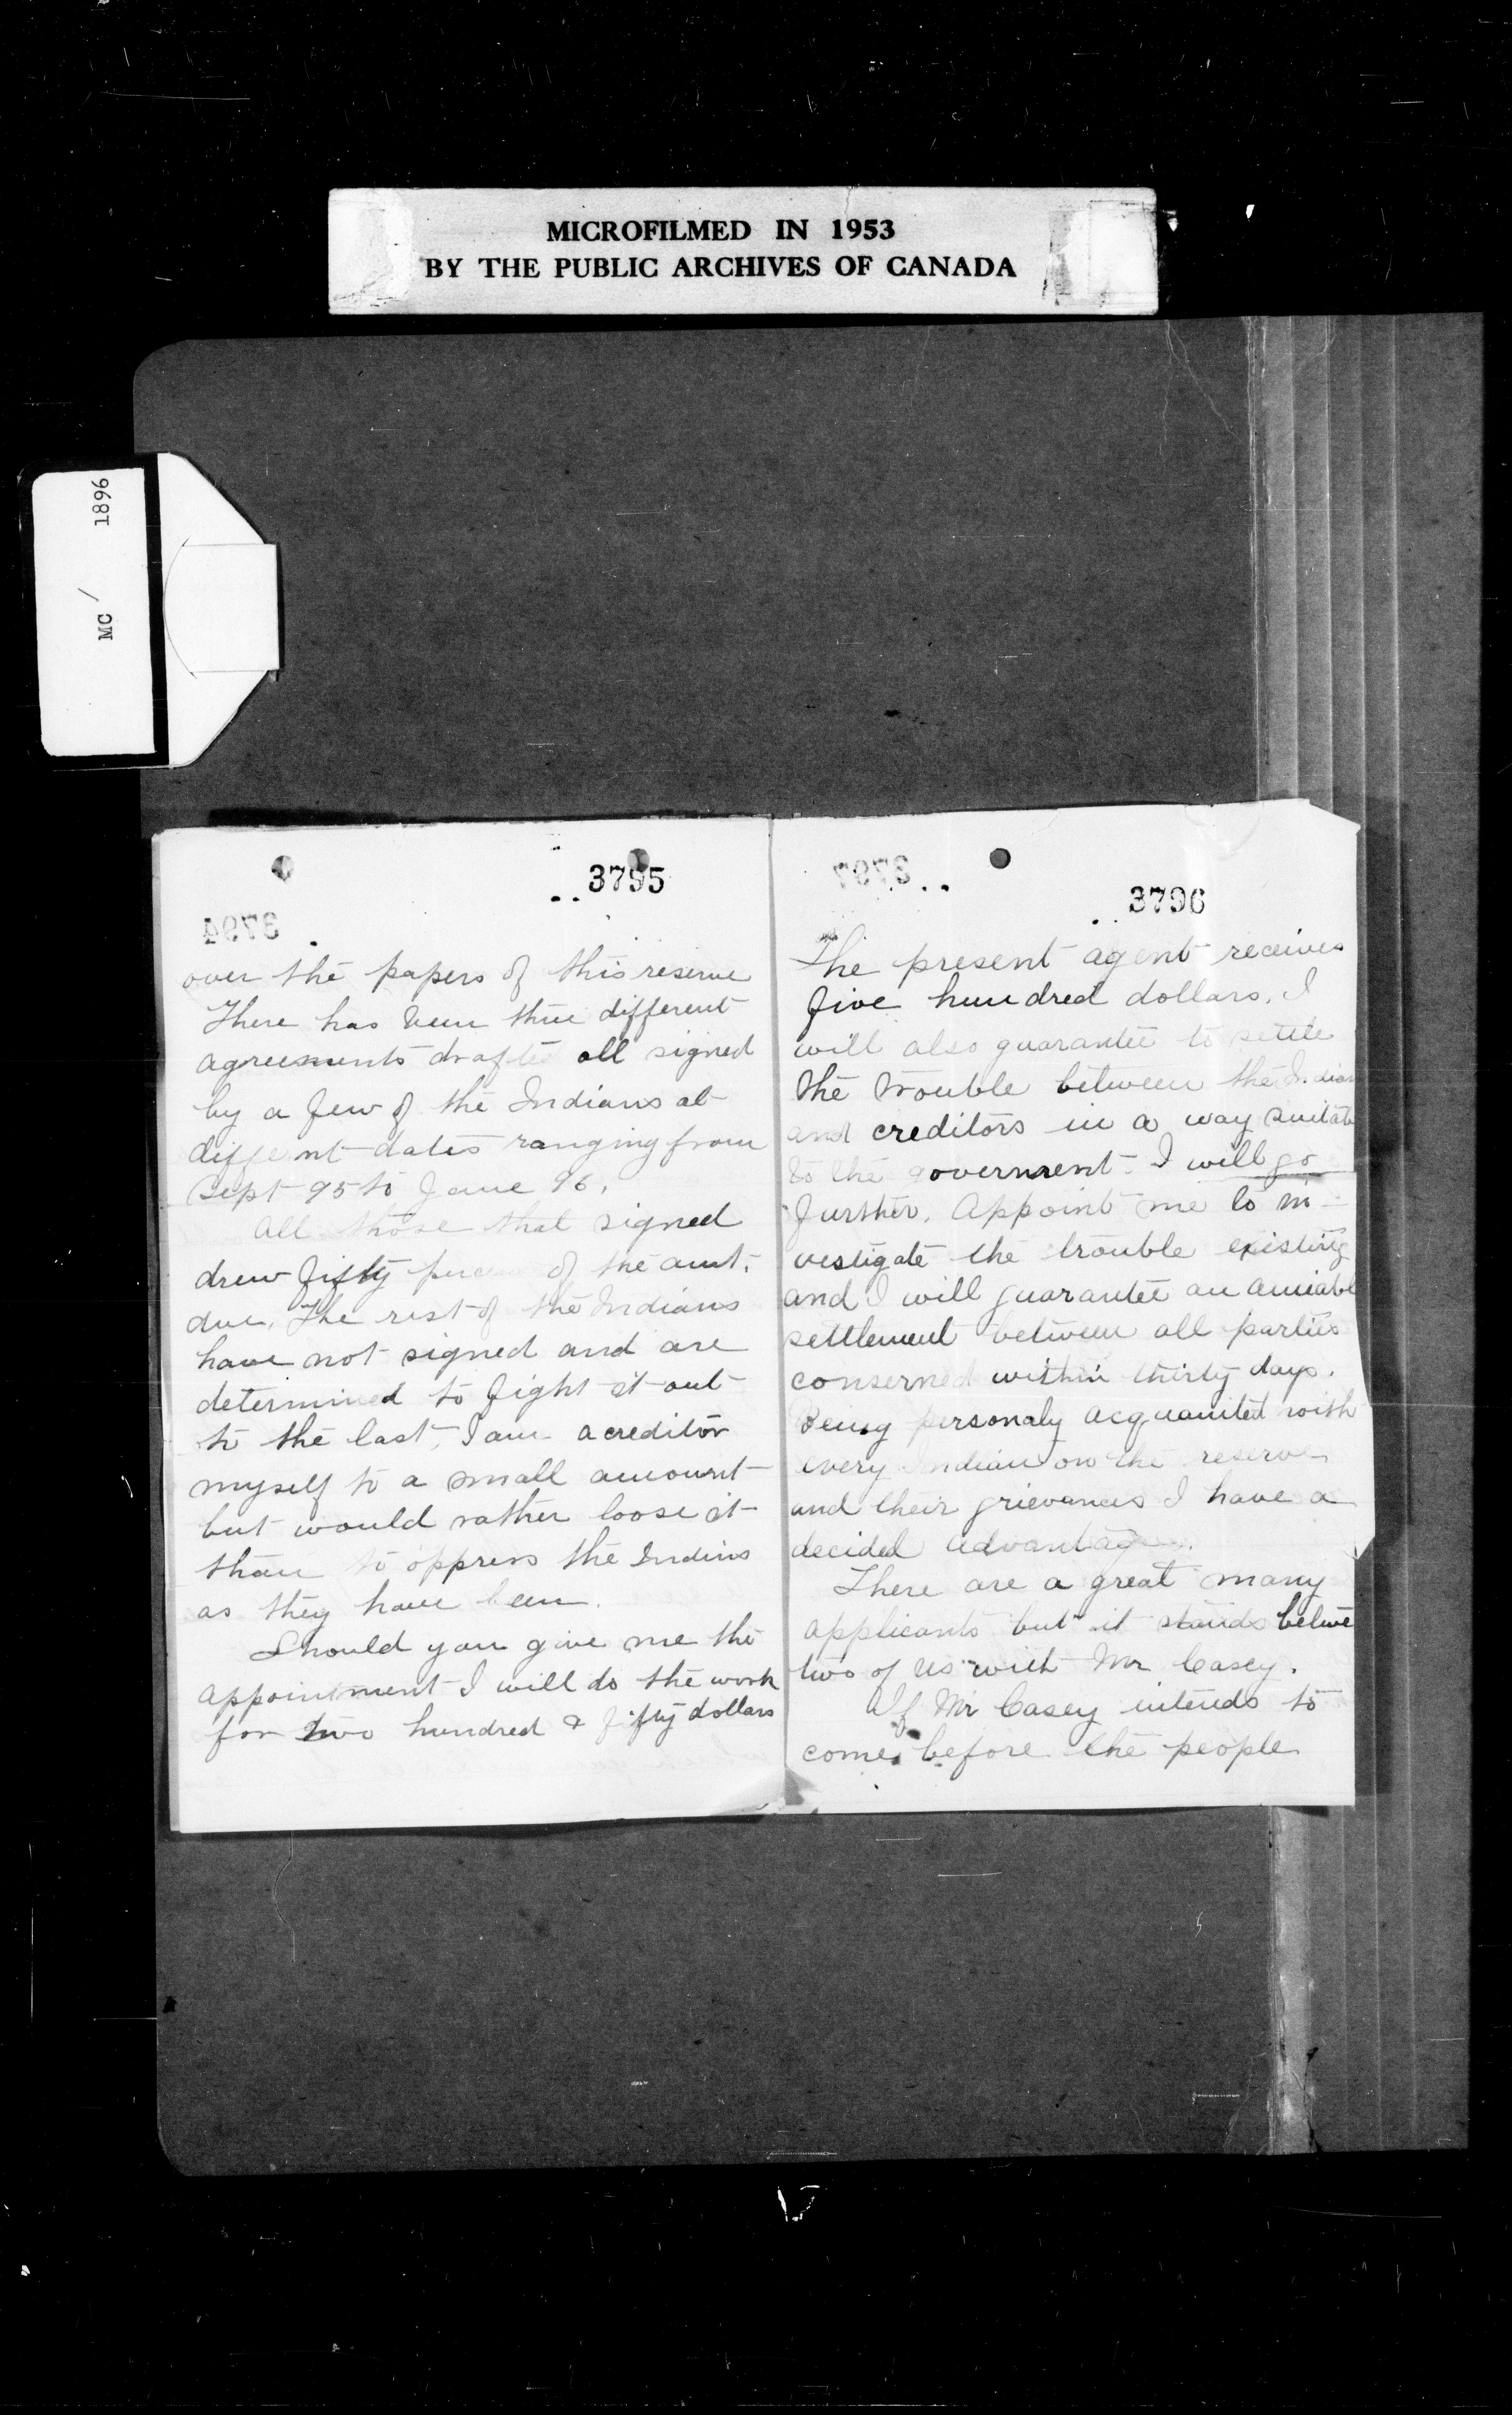 MICROFILMED IN 1953
BY THE PUBLIC ARCHIVES OF CANADA
MC / 1896
3795
3794
over the papers of this reserve
There has been three different
agreements drafted all signed
by a few of the Indians at
different dates ranging from
Sept 95 to June 96.
All those that signed
drew fifty of the amt.
due. The rest of the Indians
have not signed and are
determined to fight it out
to the last, I am a creditor
myself to a small amount
but would rather loose it
than to oppress the Indins
as they have been.
Should you give me the
appointment I will do the work
for two hundred & fifty dollars
3797
3796
The present agent receives
five hundred dollars. I
will also guarantee to settle
the trouble between the Indian
and creditors in a way suitab
to the government. I will go
further. Appoint me to in-
vestigate the trouble existing
and I will guarantee an amiabl
settlement between all parties
conserned within thirty days.
Being personaly acquainted with
every Indian on the reserve
and their grievances I have a
decided advantage.
There are a great many
applicants but it stands betwe
two of us with Mr Casey.
If Mr Casey intends to
come before the people